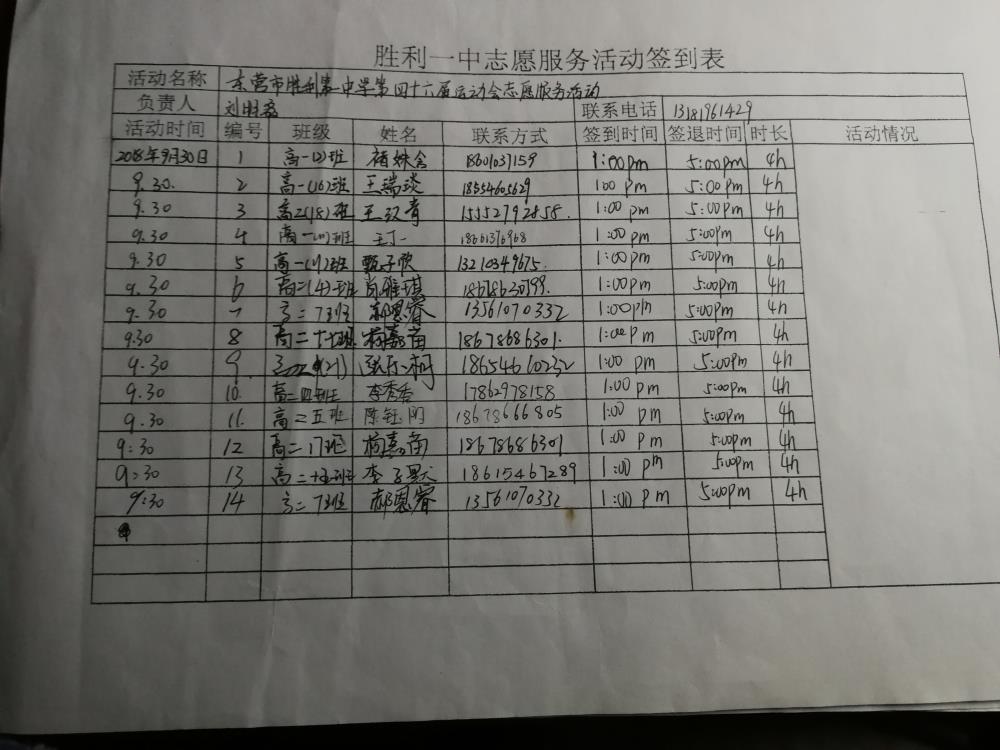 胜利一中志愿服务活动签到表
活动名称 东营市胜利第一中学第四十六届运动会志愿服务活动
负责人 刘明 联系电话 13181961429
活动时间 编号 班级 姓名 联系方式 签到时间 签退时间 时长 活动情况
2018年9月30日 1 高一(2)班 褚姝含 18601037159 1:00pm 5:00pm 4h
9.30. 2 高一(16)班 王瑞琰 18554605629 1:00 pm 5:00 pm 4h
9.30 3 高二(18)班 王汉青 15552792858. 1:00 pm 5:00pm 4h
9.30 4 高一 班 王丁一 18661376968 1:00 pm 5:00pm 4h
9.30 5 高一(1)班 甄子欣 13210349675. 1:00pm 5:00pm 4h
9.30 6 高二(4)班 肖雅琪 1:00pm 5:00pm 4h
9.30 7 高二 7班 郝恩睿 13561070332 1:00pm 5:00pm 4h
9.30 8 高二十七班 杨嘉苗 18678686301. 1:00pm 5:00pm 4h
9.30 9. (21) 18654610232 1:00 pm 5:00pm 4h
9.30 10. 高二四班 李秀香 17862978158 1:00 pm 5:00pm 4h
9.30 11. 高二五班 陈钰阳 18678666805 1:00 pm 5:00pm 4h
9:30 12 高二17班 杨嘉苗 18678686301 1:00 pm 5:00pm 4h
9:30 13 高二十五班 李子默 18615467289 1:00 pm 5:00pm 4h
9:30 14 高二 7班 郝恩睿 13561070332 1:00 pm 5:00pm 4h